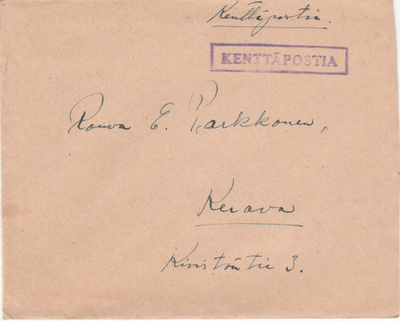 Kenttäpostia.
KENTTÄPOSTIA
Rouva E. Parkkonen,
Kerava
Kivistöntie 3.